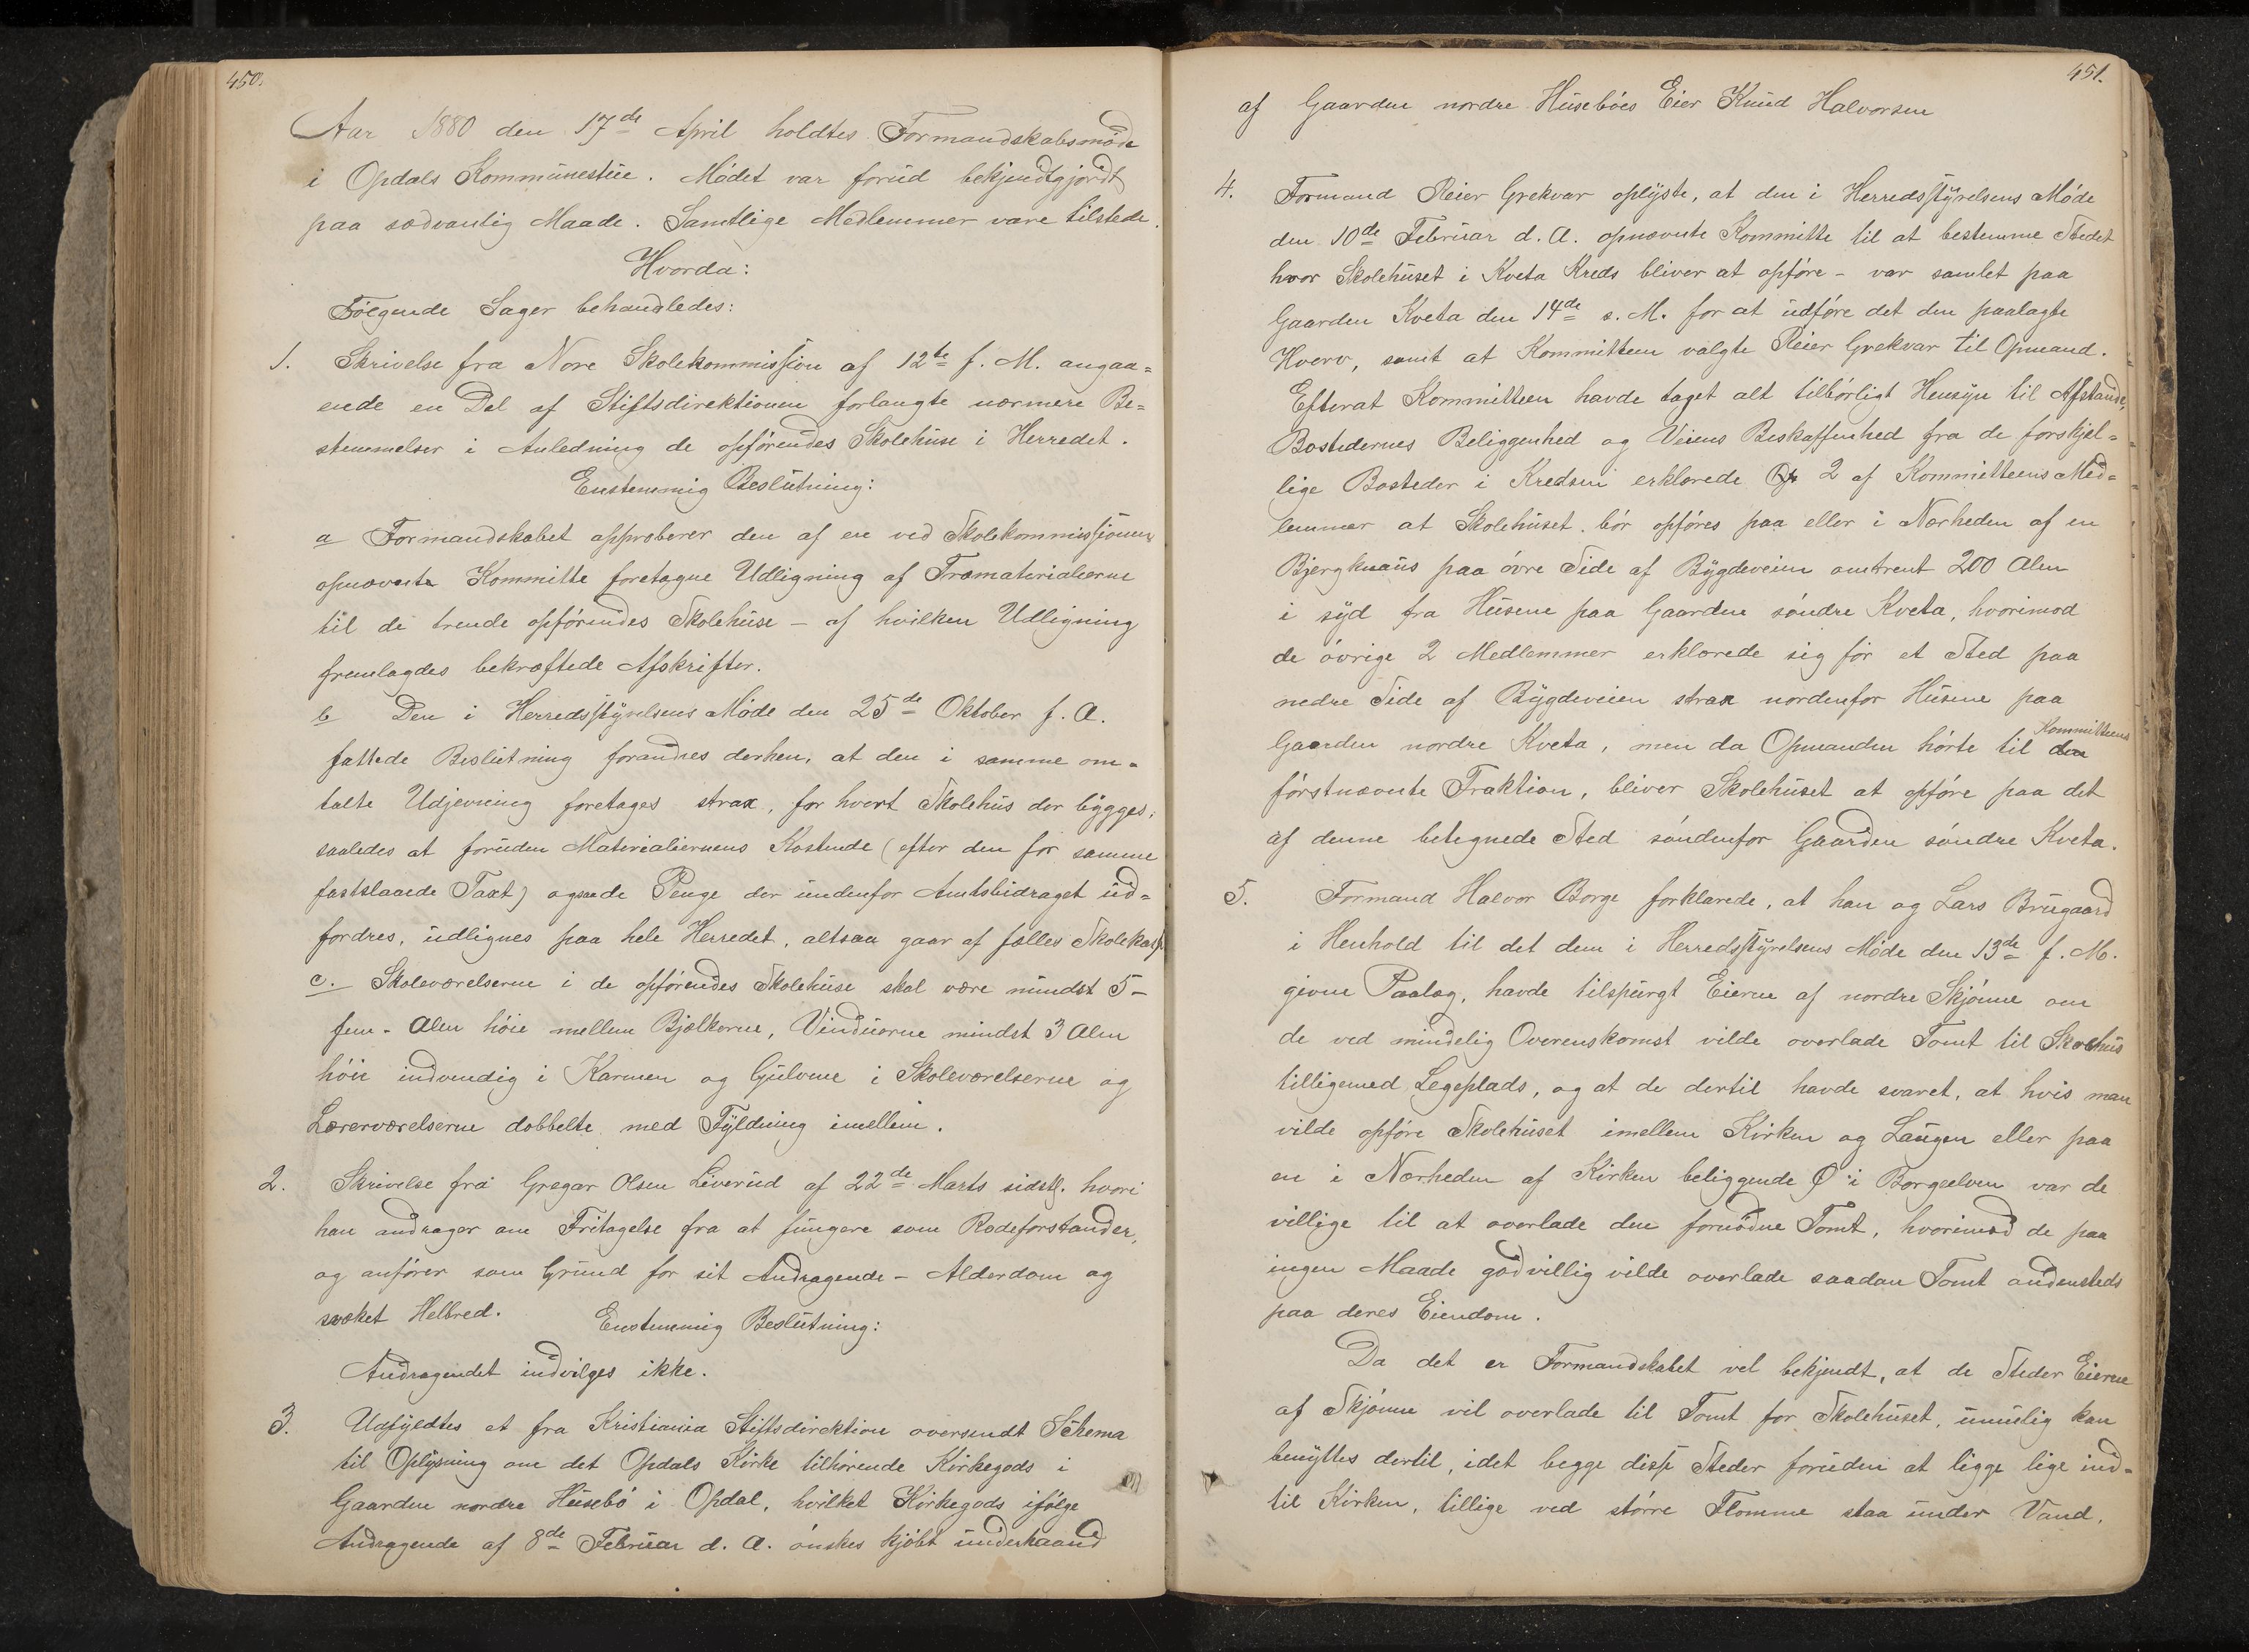 450.
Aar 1880 den 17de April holdtes Formandskabsmøde
i Opdals Kommunestue. Mødet var forud bekjendtgjordt
paa sædvanlig Maade. Samtlige Medlemmer vare tilstede.
Hvorda:
Følgende Sager behandledes:
1. Skrivelse fra Nore Skolekommission af 12te f. M. angaa=
ende en Del af Stiftsdirektionen forlangte nærmere Be=
stemmelser i Anledning de opførendes Skolehuse i Herredet.
Enstemmig Beslutning:
a Formandskabet approberer den af en ved Skolekommissionen
opnævnte Kommitte foretagne Udligning af Træmaterialierne
til de trende opførendes Skolehuse - af hvilken Udligning
fremlagdes bekræftede Afskrifter.
b Den i Herredsstyrelsens Møde den 25de Oktober f. A.
fattede Beslutning forandres derhen, at den i samme om=
talte Udjevning foretages strax, for hvert Skolehus der bygges,
saaledes at foruden Materialiernes Kostende (efter den for samme
fastslaaede Taxt) ogsaa de Penge der undenfor Amtsbidraget ud=
fordres, udlignes paa hele Herredet, altsaa gaar af fælles Skolekasse
c. Skoleværelserne i de opførendes Skolehuse skal være mindst 5-
fem - Alen høie mellem Bjælkerne, Vinduerne mindst 3 Alen
høie indvendig i Karmen og Gulvene i Skoleværelserne og
Lærerværelserne dobbelte med Fyldning imellem.
2. Skrivelse fra Gregar Olsen Liverud af 22de Marts sidstl. hvori
han andrager om Fritagelse fra at fungere som Rodeforstander,
og anfører som Grund for sit Andragende - Alderdom og
svæket Helbred. Enstemmig Beslutning:
Andragendet indvilges ikke.
3. Udfyldtes et fra Kristiania Stiftsdirektion oversendt Schema
til Oplysning om det Opdals Kirke tilhørende Kirkegods i
Gaarden nordre Husebø i Opdal, hvilket Kirkegods ifølge
Andragende af 8de Februar d. A. ønskes kjøbt underhaand
451.
af Gaarden nordre Husebøes Eier Knud Halvorsen
4. Formand Reier Grekvar oplyste, at den i Herredsstyrelsens Møde
den 10de Februar d. A. opnævnte Kommitte til at bestemme Stedet
hvor Skolehuset i Kveta Kreds bliver at opføre - var samlet paa
Gaarden Kveta den 14de s. M. for at udføre det den paalagte
Hverv, samt at Kommitteen valgte Reier Grekvar til Opmand.
Efterat Kommitteen havde taget alt tilbørligt Hensyn til Afstande,
Bostedernes Beliggenhed og Veiens Beskaffenhed fra de forskjel=
lige Bosteder i Kredsen erklærede 2 af Kommitteens Med=
lemmer at Skolehuset bør opføres paa eller i Nærheden af en
Bjergknaus paa øvre Side af Bygdeveien omtrent 200 Alen
i syd fra Husene paa Gaarden søndre Kveta, hvorimod
de øvrige 2 Medlemmer erklærede sig for et Sted paa
nedre Side af Bygdeveien strax nordenfor Husene paa
Gaarden nordre Kveta, men da Opmanden hørte til den Kommitteens
førstnævnte Fraktion, bliver Skolehuset at opføre paa det
af denne betegnede Sted søndenfor Gaarden søndre Kveta.
5. Formand Halvor Borge forklarede, at han og Lars Brugaard
i Henhold til det dem i Herredsstyrelsens Møde den 13de f. M.
givne Paalæg, havde tilspurgt Eierne af nordre Skjønne om
de ved mindelig Overenskomst vilde overlade Tomt til Skolehus
tilligemed Legeplads, og at de dertil havde svaret, at hvis man
vilde opføre Skolehuset imellem Kirken og Laugen eller paa
en i Nærheden af Kirken beliggende Ø i Borgeelven var de
villige til at overlade den fornødne Tomt, hvorimod de paa
ingen Maade godvillig vilde overlade saadan Tomt andensteds
paa deres Eiendom.
Da det er Formandskabet vel bekjendt, at de Steder Eierne
af Skjønne vil overlade til Tomt for Skolehuset, umulig kan
benyttes dertil, idet begge disse Steder foruden at ligge lige ind=
til Kirken, tillige ved større Flomme staa under Vand.